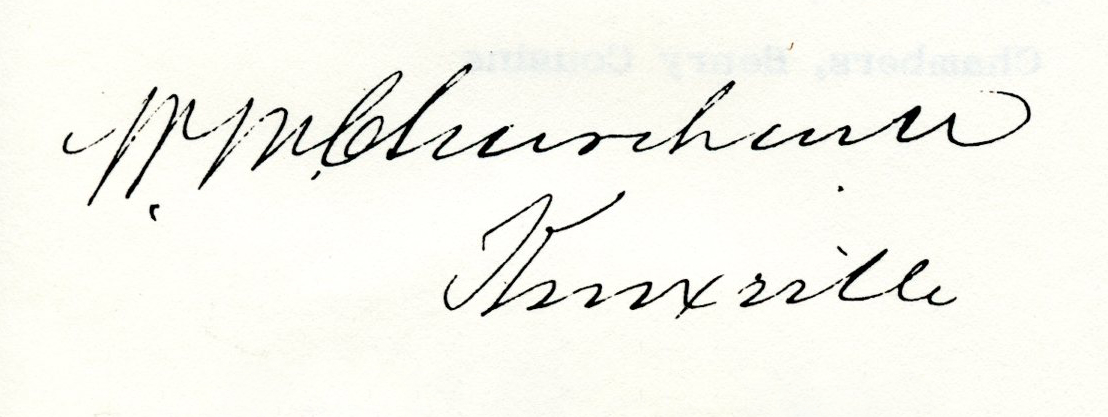 Chambers, Henry Cousins
W. M. Churchwell
Knoxville